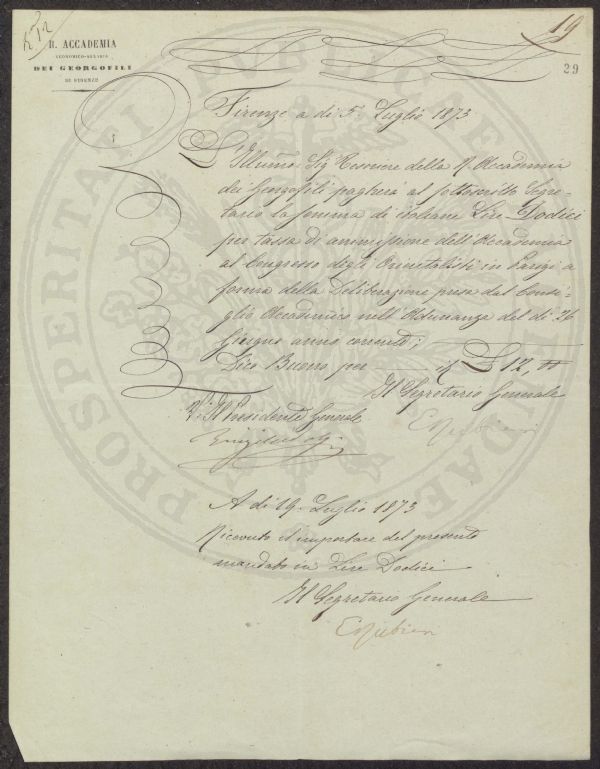 19
29
R. ACCADEMIA
ECONOMICO-AGRARIA
DEI GEORGOFILI
DI FIRENZE
Firenze a dì 5. Luglio 1873
L'Illmo Sig Tesoriere della R. Accademia
dei Georgofili pagherà al sottoscritto Segre-
tario la somma di italiane Lire Dodici
per tassa di ammissione dell'Accademia
al Congresso degli Orientalisti in Parigi a
forma della Deliberazione presa dal Consi-
glio Accademico nell'Adunanza del dì 26
Giugno anno corrente;
Dico Buono per £ 12,
Il Segretario Generale
Vo Il Presidente Generale
A dì 19. Luglio 1873
Ricevuto l'importare del presente
mandato in Lire Dodici
Il Segretario Generale
PROSPERITATI PUBLICAE AUGENDAE